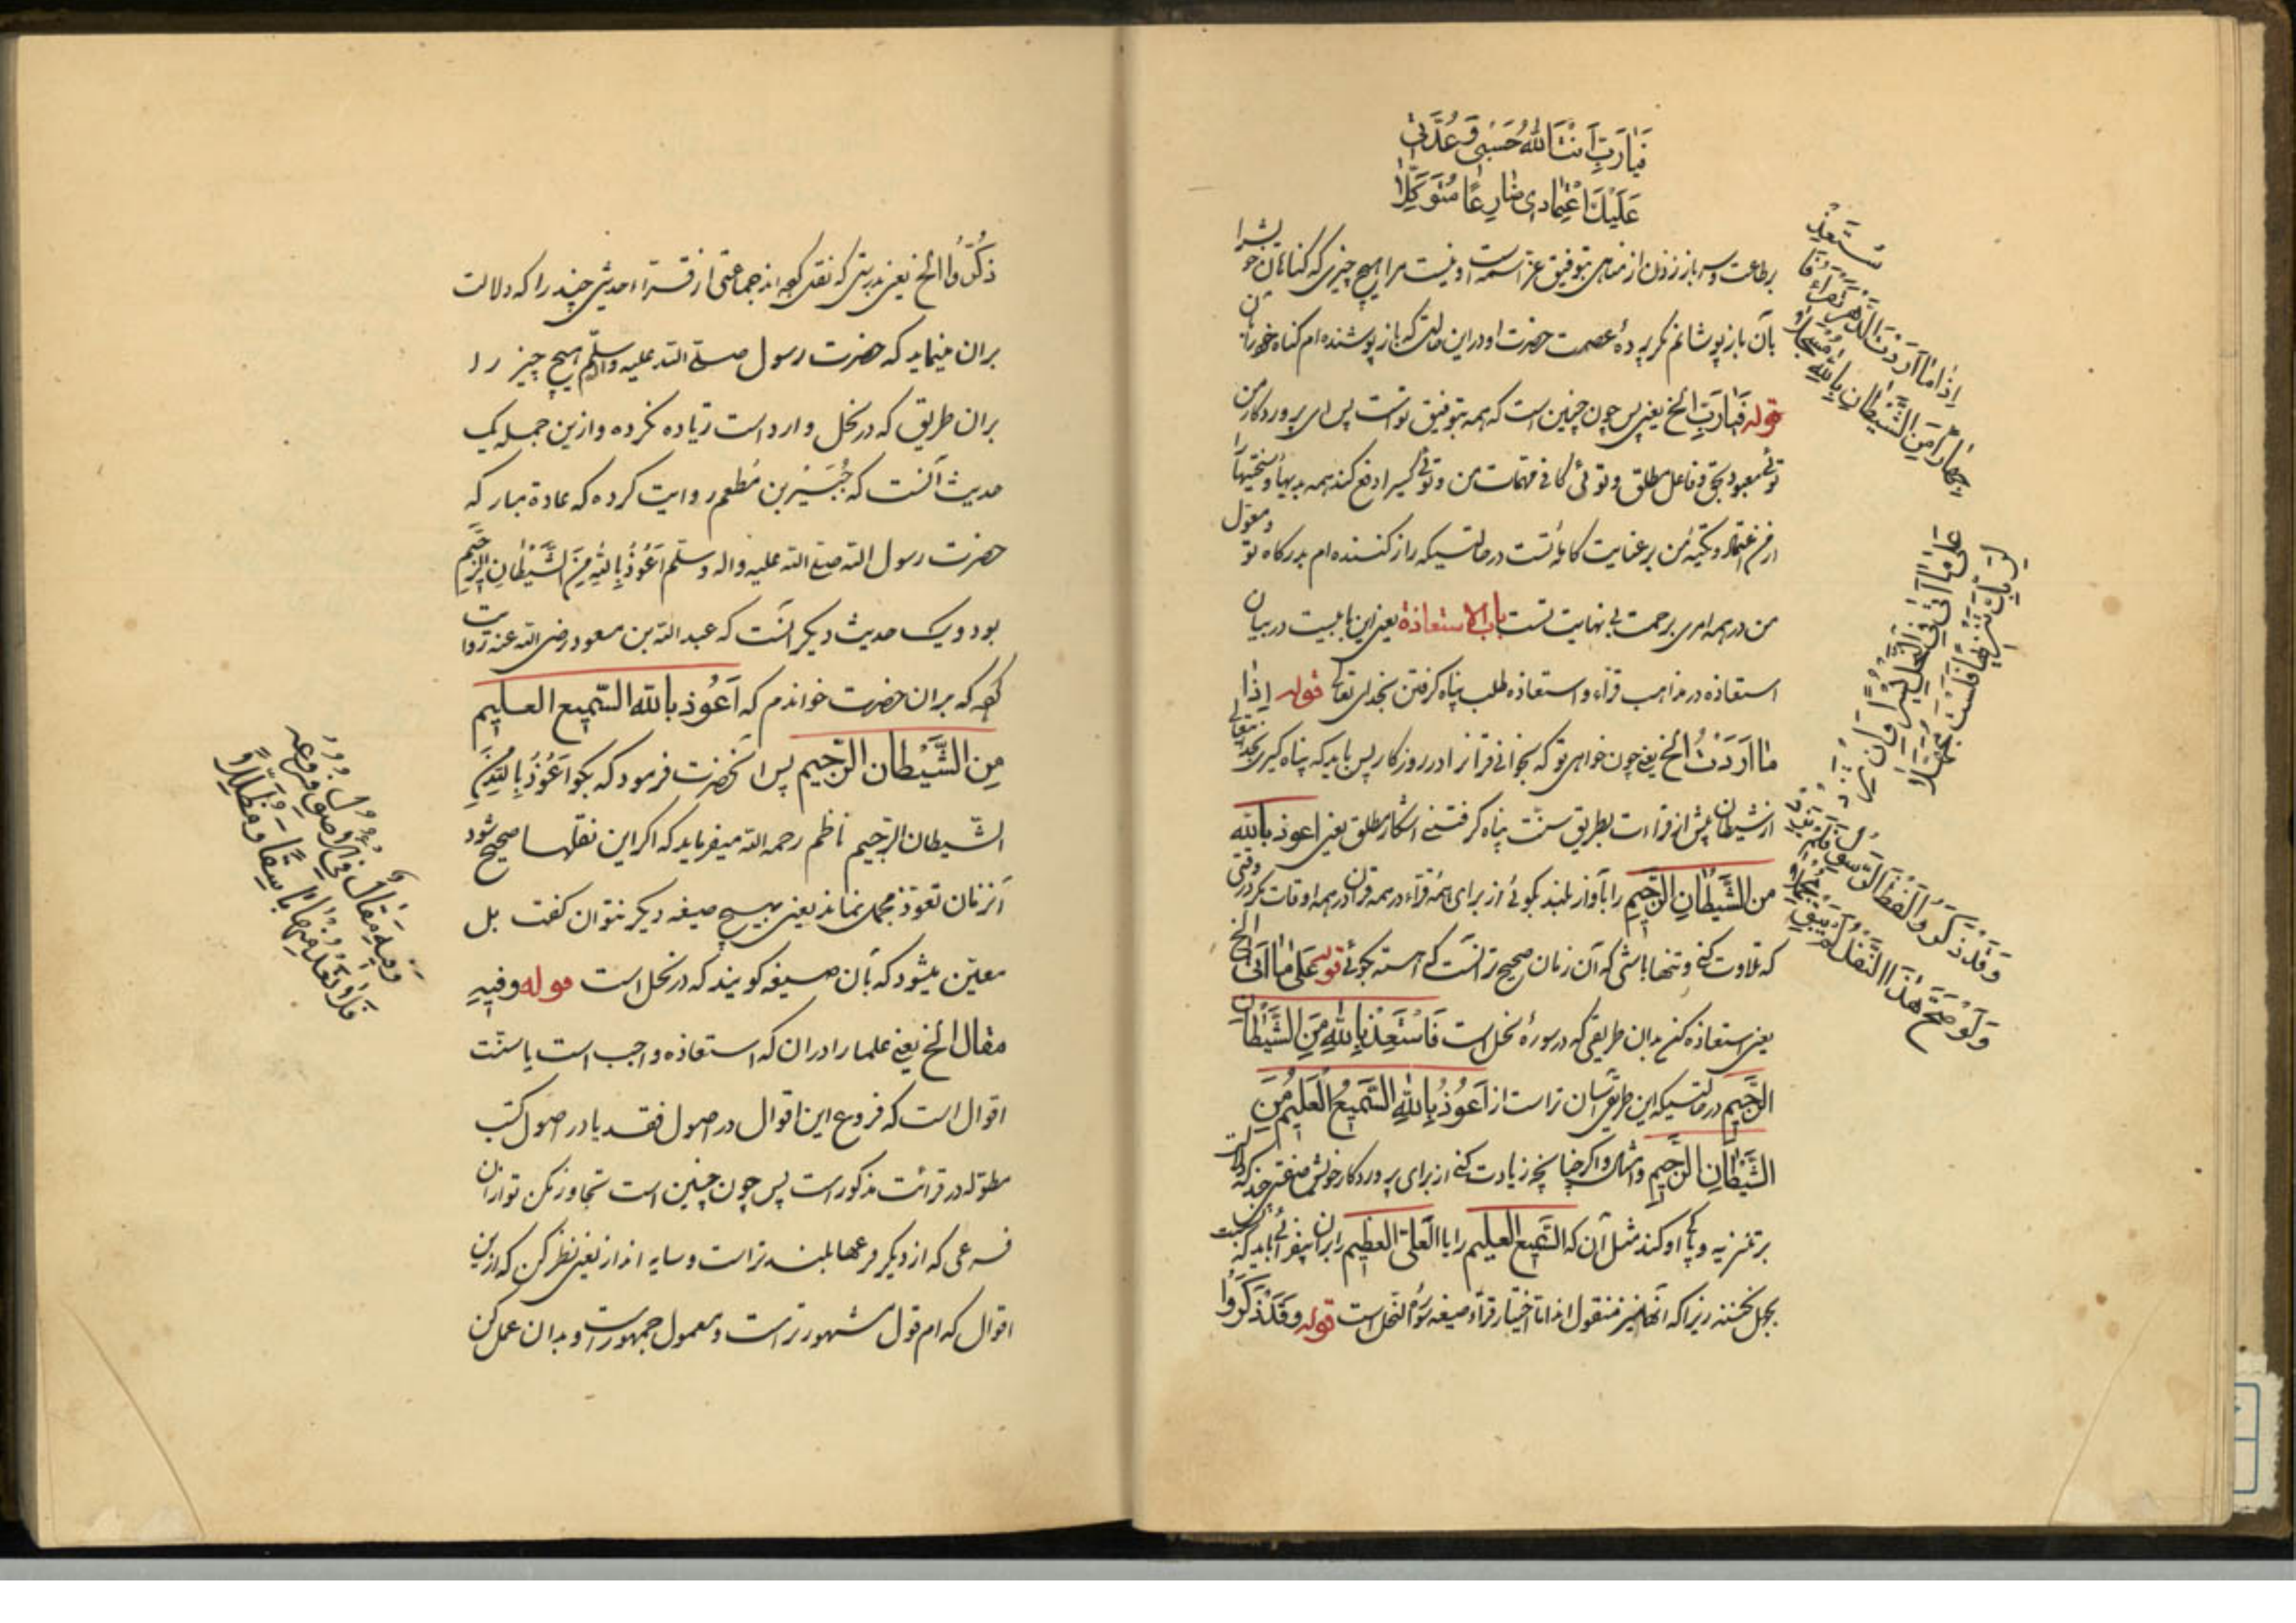 فَيَارَبِّ اَنْتَ اللّٰهُ حَسْبِى وَعُدَّتِى
عَلَيْكَ اعْتِمَادِى ضَارِعًا مُتَوَكِّلَا
بر طاعت و سر باز زدن از مناهى بتوفيق عز اسمه است و نيست مرا هيچ چيزى كه كناهان خود را
بآن باز پوشانم مكر پرده عصمت حضرت او در اين حالت كه باز پوشنده ام كناه خود بآن
قوله فَيَارَبِّ الخ يعنى پس چون چنين است كه همه بتوفيق توست پس اى پروردكار من
توئى معبود بحق و فاعل مطلق و توئى كافى مهمات من و توئى كسى را دفع كند همه بديها و سختيها را
از من اعتماد و تكيه من بر عنايت كامله تست در حالتيكه راز كننده ام بدركاه تو و معول
من در همه امرى برحمت بى نهايت تست باب الاستعاذة يعنى اين بابيست در بيان
استعاذه در مذاهب قراء و استعاذه طلب پناه كرفتن بخداى تعالى قوله اِذَا
مَا اَرَدْتَ الخ يعنى چون خواهى تو كه بخوانى قرآن را در روزكار پس بايد كه پناه كيرى بخداى تعالى
از شيطان پيش از قراءت بطريق سنت پناه كرفتنى اشكارا مطلق يعنى اعوذ بالله
من الشَّيْطَانِ الرَّجِيمِ را بآواز بلند بكوئى از براى همه قراء در همه قرآن در همه اوقات مكر در وقتى
كه تلاوت كنى و تنها باشى كه آن زمان صحيح تر آنست كه آهسته بكوئى قوله عَلَى مَا اَتَى الخ
يعنى استعاذه كن بدان طريقى كه در سوره نحل است فَاسْتَعِذْ بِاللّٰهِ مِنَ الشَّيْطَانِ
الرَّجِيمِ در حالتيكه اين طريق آسان تر است از اَعُوذُ بِاللّٰهِ السَّمِيعِ الْعَلِيمِ مِنَ
الشَّيْطَانِ الرَّجِيمِ و امثال و اكر چنانچه زيادت كنى از براى پروردكار خويش صفتى چند كه دلالت
بر تنزيه و پاكى او كند مثل آن كه السَّمِيع العليم را يا العَلِىّ العظيم را بران بيفزائى بايد كه
بجهل نكنند زيرا كه آنها نيز منقول اند اما اختيار قراء صيغه سورة النحل است قوله وَقَدْ ذَكَرُوا
اِذَا مَا اَرَدْتَ الدَّهْرَ تَقْرَأُ فَاسْتَعِذْ
جِهَارًا مِنَ الشَّيْطَانِ بِاللّٰهِ مُسْجَلَا
عَلَى مَا اَتَى فِى النَّحْلِ يُسْرًا وَاِنْ تَزِدْ
لِرَبِّكَ تَنْزِيهًا فَلَسْتَ مُجَهَّلَا
وَقَدْ ذَكَرُوا لَفْظَ الرَّسُولِ فَلَمْ يَزِدْ
وَلَوْ صَحَّ هٰذَا النَّقْلُ لَمْ يُبْقِ مُجْمَلَا
ذَكَرُوا الخ يعنى بدرستى كه نقل كرده اند جماعتى از قراء حديثى چند را كه دلالت
بران مينمايد كه حضرت رسول صلى الله عليه و اله وسلم هيچ چيز را
بران طريق كه در نحل وارد است زياده نكرده و ازين جمله يك
حديث آنست كه جُبَيْر بن مُطعم روايت كرده كه عادة مباركه
حضرت رسول الله صلى الله عليه واله وسلم اَعُوْذُ بِاللّٰهِ مِنَ الشَّيْطَانِ الرَّجِيمِ
بود و يك حديث ديكر آنست كه عبد الله بن مسعود رضى الله عنه روايت
كرده كه بران حضرت خواندم كه اَعُوذ بالله السَّمِيع العليم
مِن الشَّيْطَان الرَّجيم پس آنحضرت فرمود كه بكو اَعُوْذُ بِاللّٰهِ مِنَ
الشّيطان الرّجيم ناظم رحمه الله ميفرمايد كه اكر اين نقلها صحيح شود
آنزمان تعوّذ مجمل نماند يعنى بهيچ صيغه ديكر نتوان كفت بل
معيّن ميشود كه بآن صيغه كويند كه در نحل است قوله وفيهِ
مقال الخ يعنى علما را دران كه استعاذه واجب است يا سنت
اقوال است كه فروع اين اقوال در اصول فقه يا در اصول كتب
مطوّله در قرائت مذكور است پس چون چنين است تجاوز مكن تو ازان
فرعى كه از ديكر فرعها بلند تر است و سايه انداز يعنى نظر كن كه ازين
اقوال كدام قول مشهورتر است و معمول جمهور است و بدان عمل كن
وَفِيهِ مَقَالٌ فِى الْاُصُولِ فُرُوعُهُ
فَلَا تَعْدُ مِنْهَا بَاسِقًا وَمُظَلِّلَا